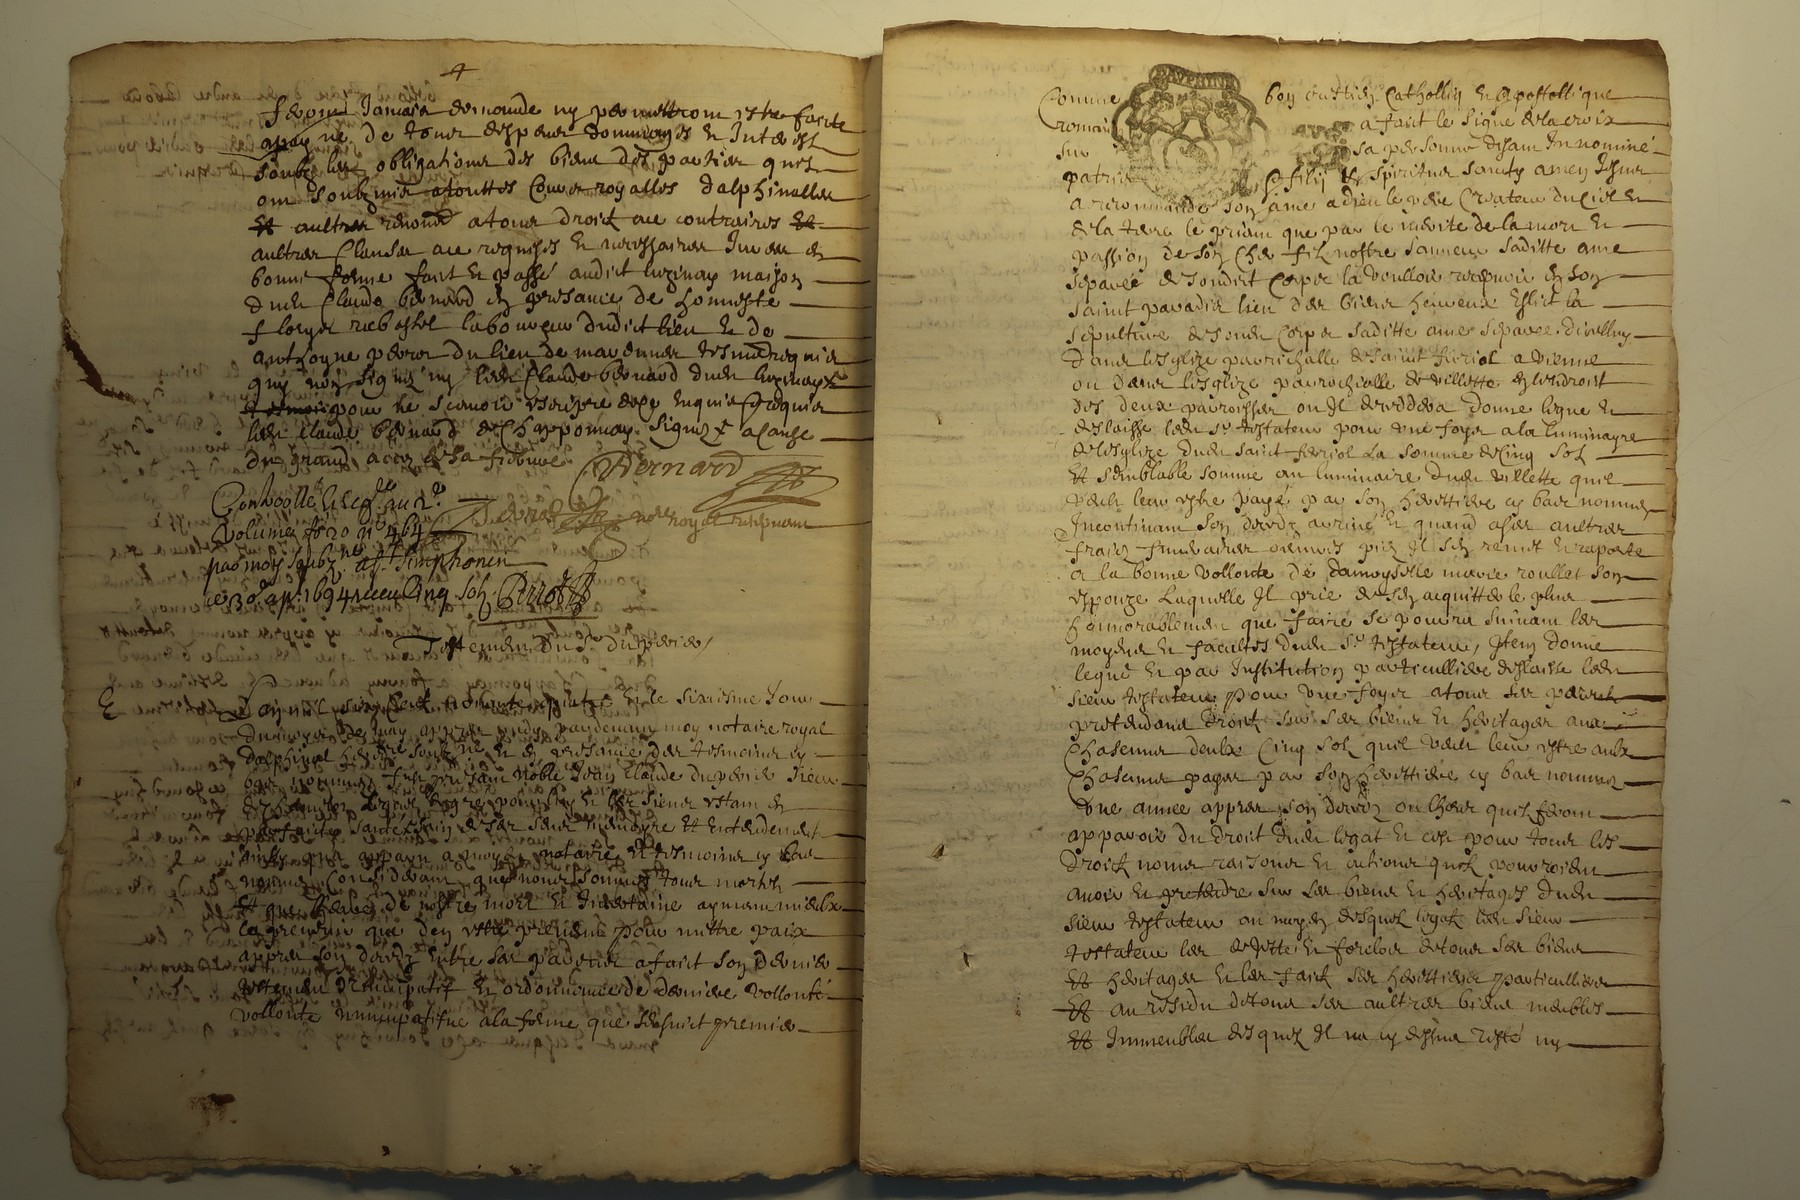 feront Jamais demande ny permettront estre faicte
a payne de tous despens dommages et Interest
soubz les obligations des biens des parties quels
ont soubzmis a touttes Cours royalles dalphinalles
Et aultres renonce a tous droict au contraires Et
aultres Clauses au requises et necessaires Jurer en
bonne forme faict et passé audict luzinay maison
dudit Claude bernard en presance de honneste
laboureur dudict lieu et de
anthoyne du lieu de tesmoings requis
quy nont signé ny ledit Claude bernard dudit luzinay
pour ne scavoir escripre de ce enquis et requis
ledit Claude bernard de Chapponnay signez a cause
du grand de sa fiebvre Bernard
Controollé Enreg. au 2e
volume fo 20 no 464 notre royal
par moy soubz.ne a St Simphorien
ce 30e ap. 1694 receu Cinq solz Perrot
Testement Du Sr. duperier
L an mil six Cent et le sixiesme Jour
du moys de may appres midy pardevant moy notaire royal
dalphinal soubz.ne et en presance des tesmoings cy
bas nommez fust presant noble Jean Claude duperier sieur
lequel de gré pour luy et les siens estant en
parfaicte santé sain de ses sens memoyre et entendement
a moy notaire et tesmoings cy bas
nommez Considerant que nous sommes tous mortels
et que lheure de nostre mort est Incertaine aymant mieulx
la prevenir que den estre prevenu pour mettre paix
appres son decedz entre ses parents a faict son dernier
testement nuncupatif et ordonnance de derniere vollonté
vollonte nuncupatifve a la forme que sensuict premier
Comme bon crestien Catholicq et Apostollique
romain a faict le signe de la croix
sur sa personne disant In nomine
patris et filij et spiritus sancty amen Jesus
a recommandé son ame a dieu le pere Createur du Ciel et
de la terre le priant que par le merite de la mort et
passion de son Cher filz nostre sauveur saditte ame
separée de sondict Corps la voulloir recepvoir en son
saint paradis lieu des biens heureux Eslict la
sepulture de sondit Corps saditte ame separee dicelluy
dans lesglize parrochialle de saint ferreol a vienne
ou dans lesglize parrochialle de villette en lendroit
des deux parroisses ou Il decedera donne legue et
deslaisse ledit sr. testateur pour une foys a la luminayre
de lesglize dudit saint ferreol la somme de Cinq solz
Et semblable somme au luminaire dudit villette quil
veult leur estre payé par son herittiere cy bas nommee
Incontinant son decedz arrivé et quand a ses aultres
fraicz funeraires oeuvres pies Il sen remet et raporte
a la bonne vollonté de damoyselle marie roullet son
espouze Laquelle Il prie de sen acquitter le plus
honnorablement que faire se pourra suivant les
moyens et facultes dudit sr. testateur, Item donne
legue et par Institution particulliere deslaisse ledit
sieur testateur pour une foys a tous ses parents
pretendans droict sur ses biens et heritages a
Chascung deulx Cinq solz quil veult leur estre a ung
Chascung payes par son herittiere cy bas nommee
une annee appres son decedz ou lhors quilz feront
apparoir du droict dudit legat et ce pour tous les
droictz noms raisons et actions quilz pourroient
avoir et pretendre sur ses biens et heritages dudit
sieur testateur au moyen desquelz legatz ledit sieur
testateur les dejette et forclos de tous ses biens
Et heritages et les faict ses herittiers particulliers
Et au residu de tous ses aultres biens meubles
Et Immeubles desquelz Il na cy dessus testé ny